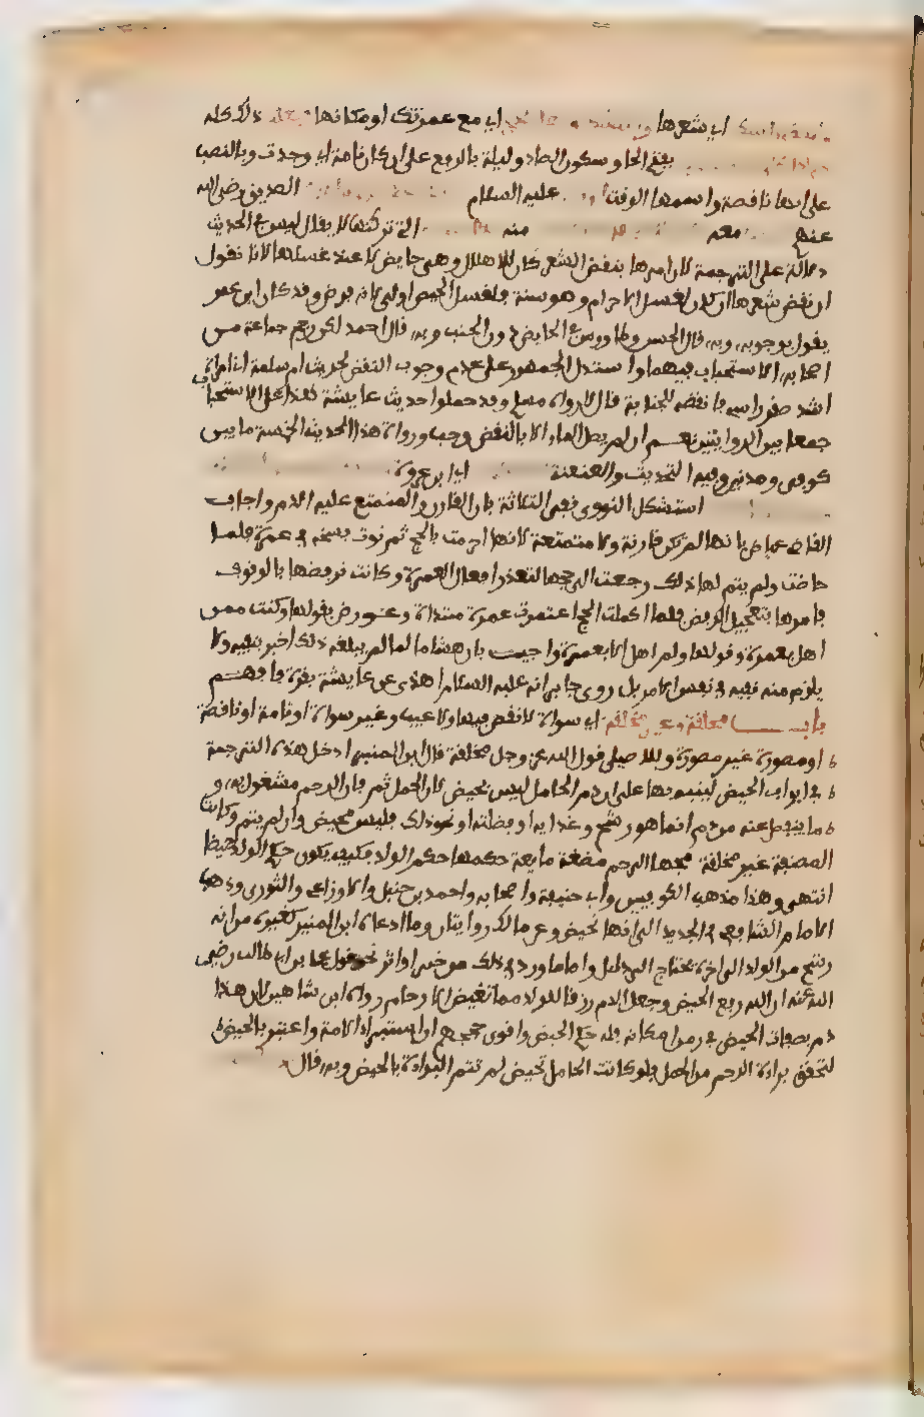 اي شعرها اي مع عمرتك او مكانها ذلك كله
بفتح الحا وسكون الصاد وليلة بالرفع على ان كان تامة اي وجدت وبالنصب
على انها ناقصة واسمها الوقت عليه السلام الصديق رضي الله
عنهم معه منه التي تركتها لا يقال ليس في الحديث
دلالة على الترجمة لان امرها بنقض الشعر كان للاهلال وهي حايض لا عند غسلها لانا نقول
ان نقض شعرها ان كان لغسل الاحرام وهو سنة فلغسل الحيض اولى لانه فرض وقد كان ابن عمر
يقول بوجوبه وبه قال الحسن وطاووس في الحايض دون الجنب وبه قال احمد لكن رجح جماعة من
اصحابه الاستحباب فيهما واستدل الجمهور على عدم وجوب النقض لحديث ام سلمة اني امراة
اشد ضفر راسي فانقضه للجنابة قال لا رواه مسلم وقد حملوا حديث عايشة هذا على الاستحباب
جمعا بين الروايتين نعم ان لم يصل الماء الا بالنقض وجب ورواة هذا الحديث الخمسة ما بين
كوفي ومدني وفيه التحديث والعنعنة اي ابن عروة
استشكل النووي نفي الثلاثة بان القارن والمتمتع عليه الدم واجاب
القاضي عياض بانها لم تكن قارنة ولا متمتعة لانها احرمت بالحج ثم نوت فسخه في عمرة فلما
حاضت ولم يتم لها ذلك رجعت الى حجها لتعذر افعال العمرة وكانت ترفضها بالوقوف
فامرها بتعجيل الرفض فلما اكملت الحج اعتمرت عمرة مبتداة وعورض بقولها وكنت ممن
اهل بعمرة وقولها ولم اهل الا بعمرة واجيب بان هشاما لما لم يبلغه ذلك اخبر بنفيه ولا
يلزم منه نفيه في نفس الامر بل روى جابر انه عليه السلام اهدى عن عايشة بقرة فافهم
باب مخلقة وغير مخلقة اي مسواة لا نقص فيها ولا عيب وغير مسواة او تامة او ناقصة
او مصورة وغير مصورة وللاصيلي قول الله عز وجل مخلقة قال ابن المنير ادخل هذه الترجمة
في ابواب الحيض لينبه بها على ان دم الحامل ليس بحيض لان الحمل تم فان الرحم مشغول به و
ما ينفصل عنه من دم انما هو رشح وغدايه او فضلته او نحو ذلك فليس بحيض وان لم يتم وكانت
المضغة غير مخلقة مجها الرحم مضغة مايعة حكمها حكم الولد فكيف يكون حكم الولد حيضا
انتهى وهذا مذهب الكوفيين وابي حنيفة واصحابه واحمد بن حنبل والاوزاعي والثوري وذهب
الامام الشافعي في الجديد الى انها تحيض وعن مالك روايتان وما ادعاه ابن المنير كغيره من انه
رشح من الولد الى اخره يحتاج الى دليل واما ما ورد في ذلك من خبر او اثر نحو قول علي بن ابي طالب رضي
الله عنه ان الله رفع الحيض وجعل الدم رزقا للولد مما تغيض الارحام رواه ابن شاهين لان هذا
دم بصفات الحيض في زمن امكانه فله حكم الحيض واقوى حججهم ان استبراء الامة واعتبر بالحيض
لتحقق براءة الرحم من الحمل فلو كانت الحامل تحيض لم تتم البراءة بالحيض وبه قال